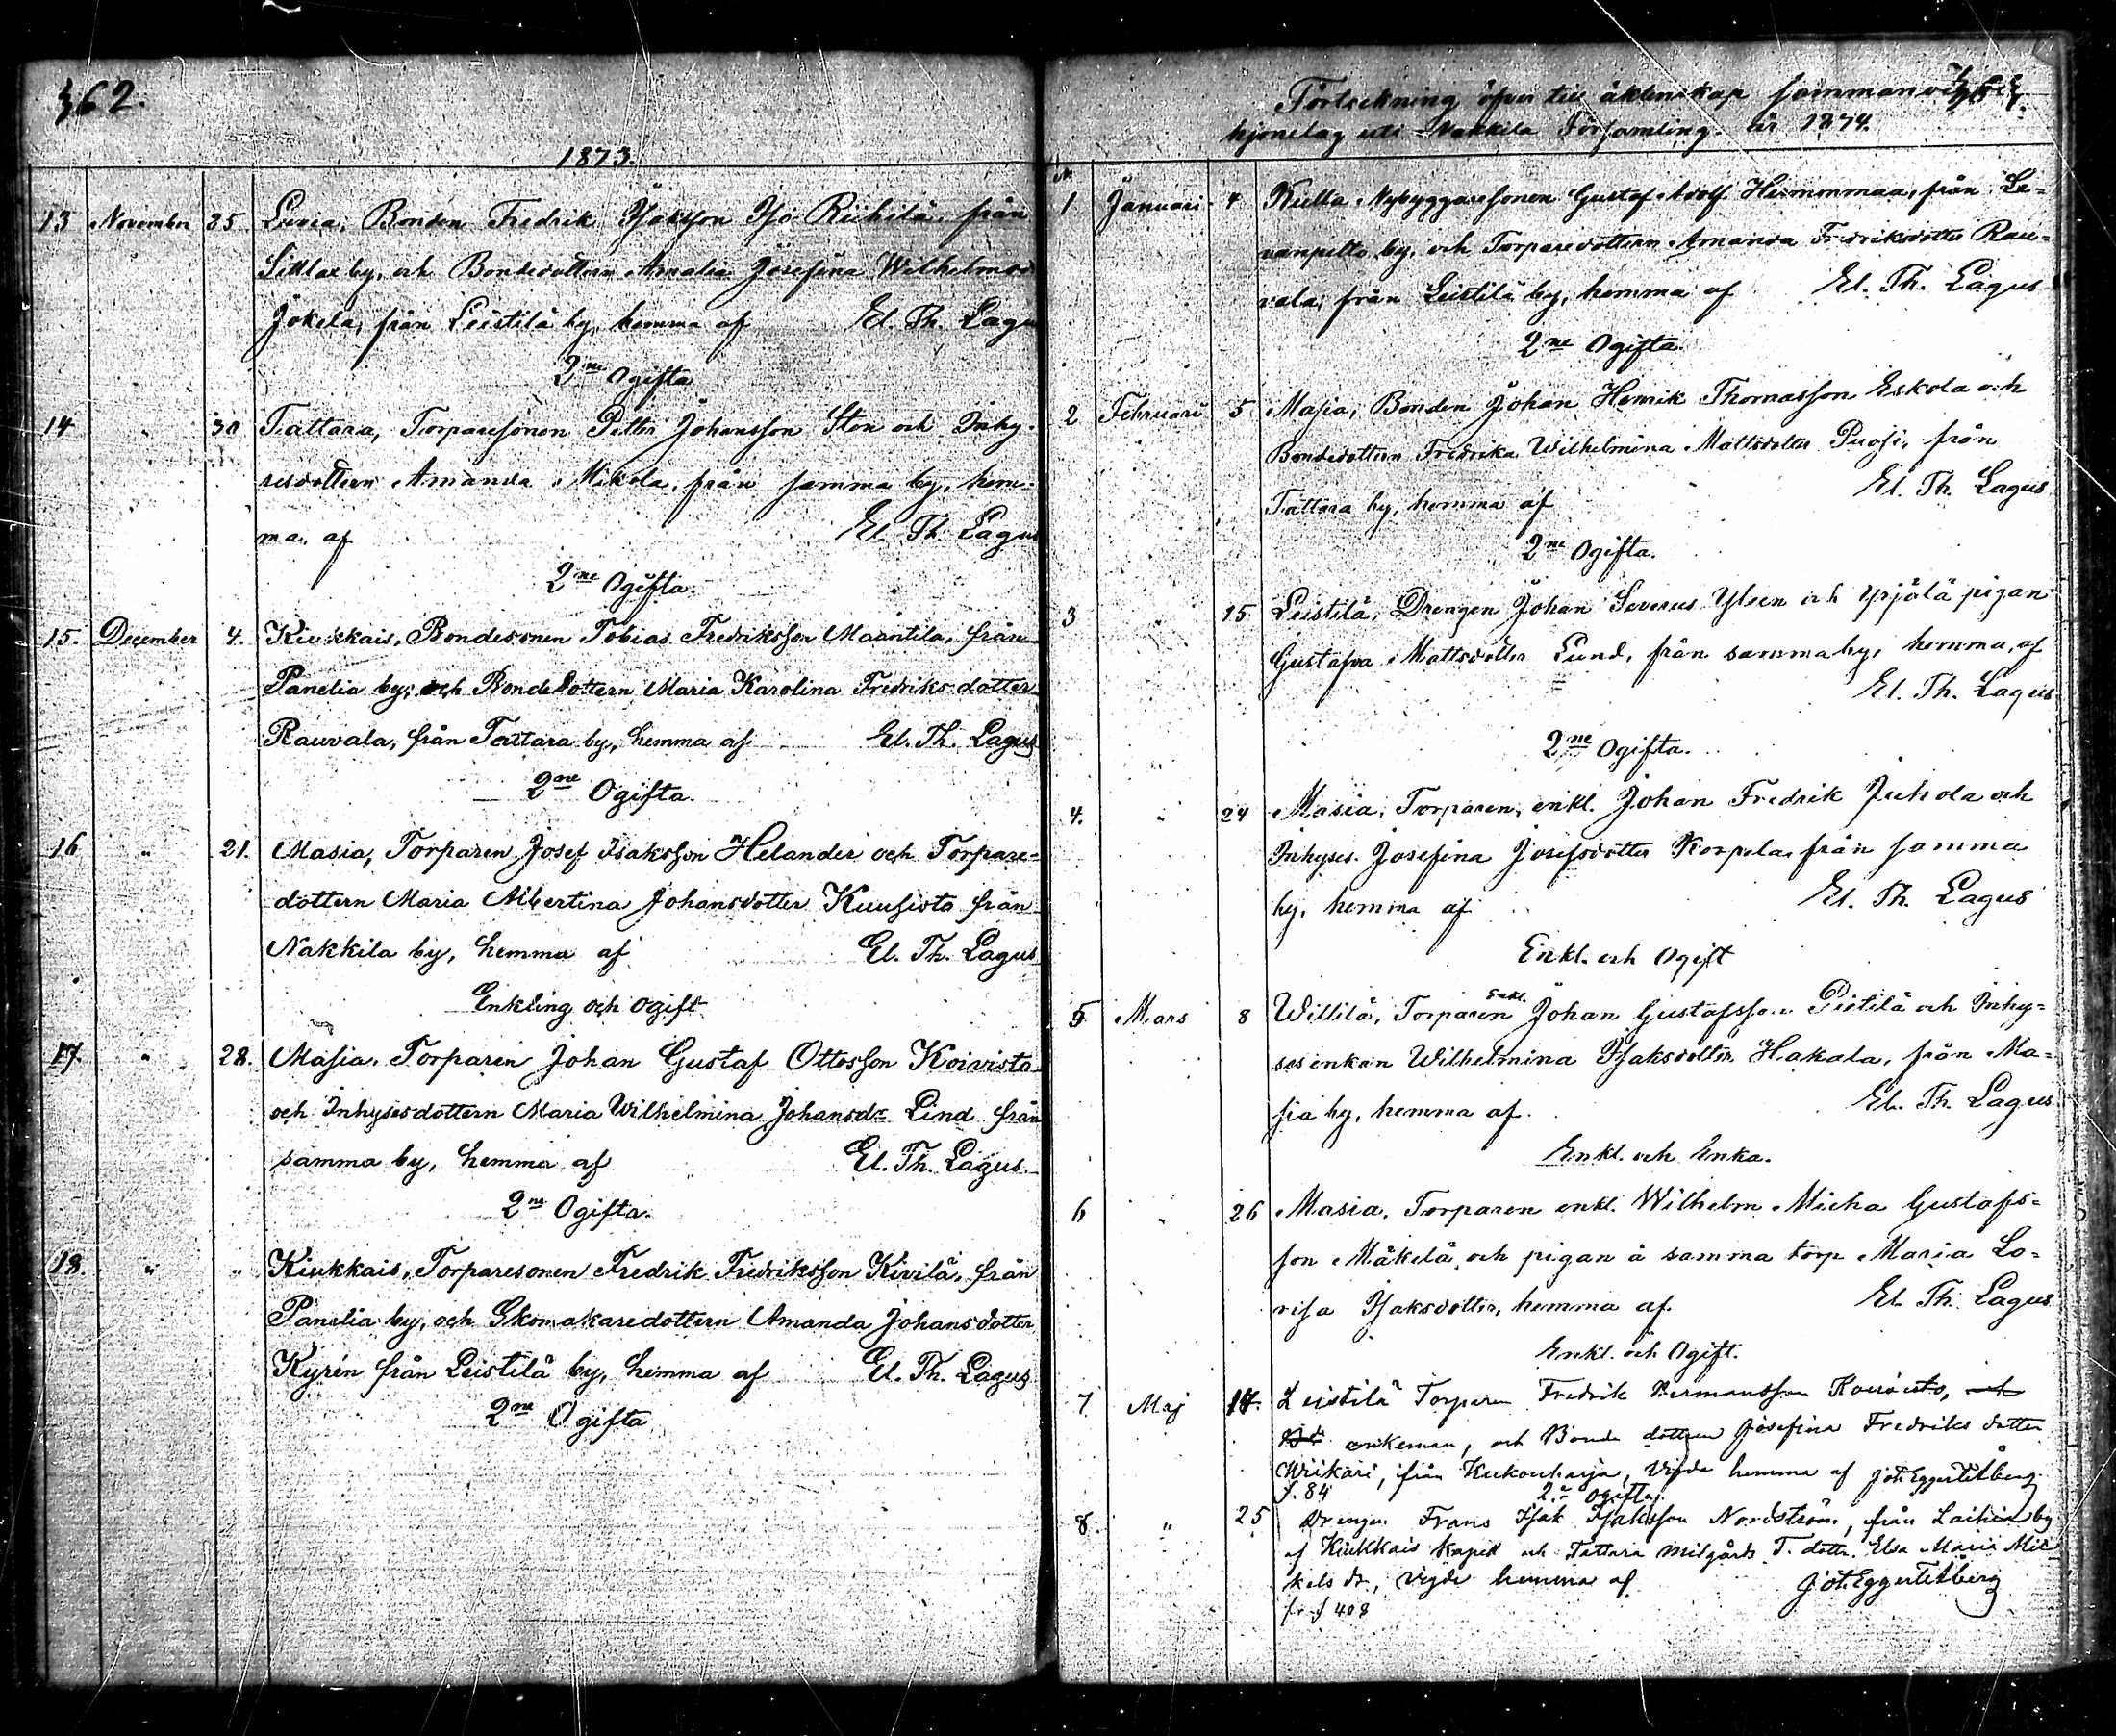 462.
1873.
13 November 25 Luvia, Bonden Fredrik Isaksson Iso Riihilä, från
by, och Bondedottern Amalia Josefina Wilhelmsd
Jokela, från Leistilä by, hemma af El. Th. Lagus
2ne Ogifta
14 " 30 Tattara, Torparesonen Petter Johansson Sten och Inhy-
sesdottern Amanda Mikola, från samma by, hem-
ma, af El. Th. Lagus
2ne Ogifta.
15. December 4. Kiukkais, Bondesonen Tobias Fredriksson Maantila, från
Panelia by, och Bondedottern Maria Karolina Fredriksdotter
Rauvala, från Tattara by, hemma af El. Th. Lagus
2ne Ogifta.
16 " 21. Masia, Torparen Josef Isaksson Helander och Torpare-
dottern Maria Albertina Johansdotter Kuusisto från
Nakkila by, hemma af El. Th. Lagus
Enkling och ogift
17. " 28. Masia, Torparen Johan Gustaf Ottosson Koivisto
och Inhysesdottern Maria Wilhelmina Johansdr Lind från
samma by, hemma af El. Th. Lagus.
2ne Ogifta.
18. " " Kiukkais, Torparesonen Fredrik Fredriksson Kivilä, från
Panelia by, och Skomakaredottern Amanda Johansdotter
Kyrén från Leistilä by, hemma af El. Th. Lagus
2ne Ogifta
Förteckning öfver till äktenskap sammanvigde
hjonelag uti Nakkila Församling år 1874.
N.
1 Januari 4 Kulla Nybyggaresonen Gustaf Adolf Hemmmaa, från Le-
vanpelto by, och Torparedottern Amanda Fredriksdotter Rau-
vala, från Leistilä by, hemma af El. Th. Lagus
2ne Ogifta.
2 Februari 5 Masia, Bonden Johan Henrik Thomasson Eskola och
Bondedottern Fredrika Wilhelmina Mattsdotter Puosi, från
Tattara by, hemma af El. Th. Lagus
2ne Ogifta.
3 " 15 Leistilä, Drengen Johan Severus Ylven och Ypjälä pigan
Gustafva Mattsdotter Lund, från samma by, hemma, af
El. Th. Lagus
2ne Ogifta.
4. " 24 Masia, Torparen, enkl. Johan Fredrik Juhola och
Inhyses. Josefina Josefsdotter Korpela från samma
by, hemma af El. Th. Lagus
Enkl. och Ogift
5 Mars 8 Willilä, Torparen Enkl. Johan Gustafsson Pietilä och Inhy-
sesenkan Wilhelmina Isaksdotter Hakala, från Ma-
sia by, hemma af. El. Th. Lagus
Enkl. och Enka.
6 " 26 Masia, Torparen enkl. Wilhelm Micha Gustafs-
son Mäkelä och pigan å samma torp Maria Lo-
visa Isaksdotter, hemma af El. Th. Lagus
Enkl. och Ogift.
7 Maj 17. Leistilä Torparen Fredrik Hermansson Koivisto, och
enkeman, och Bonde dottren Josefina Fredriks dotter
Wiikari, från Kukonharja, Vigde hemma af Joh Egger Tetberg
f. 84 2:e ogifta
8 " 25 Drengen Frans Isak Isaksson Nordström, från by
af Kiukkais kapell och Tattara T. dottr. Elsa Maria Mic
kels dr, Vigde hemma af Joh Egger Tetberg
fr. f 408